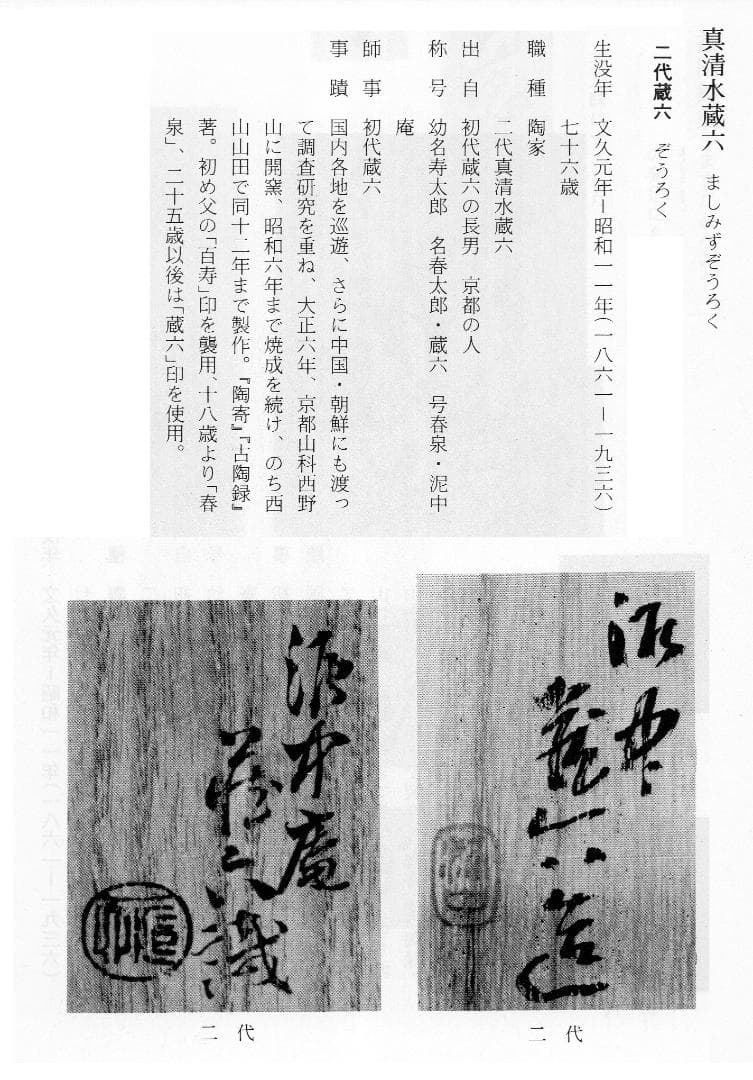 真清水蔵六 ましみずぞうろく
二代蔵六 ぞうろく
生没年 文久元年ー昭和一一年(一八六一ー一九三六)
七十六歳
職種 陶家
二代真清水蔵六
出自 初代蔵六の長男 京都の人
称号 幼名寿太郎 名春太郎・蔵六 号春泉・泥中
庵
師事 初代蔵六
事蹟 国内各地を巡遊、さらに中国・朝鮮にも渡っ
て調査研究を重ね、大正六年、京都山科西野
山に開窯、昭和六年まで焼成を続け、のち西
山山田で同十二年まで製作。『陶寄』『古陶録』
著。初め父の「百寿」印を襲用、十八歳より「春
泉」、二十五歳以後は「蔵六」印を使用。
泥中
蔵六造
二代
泥中庵
蔵六識
二代